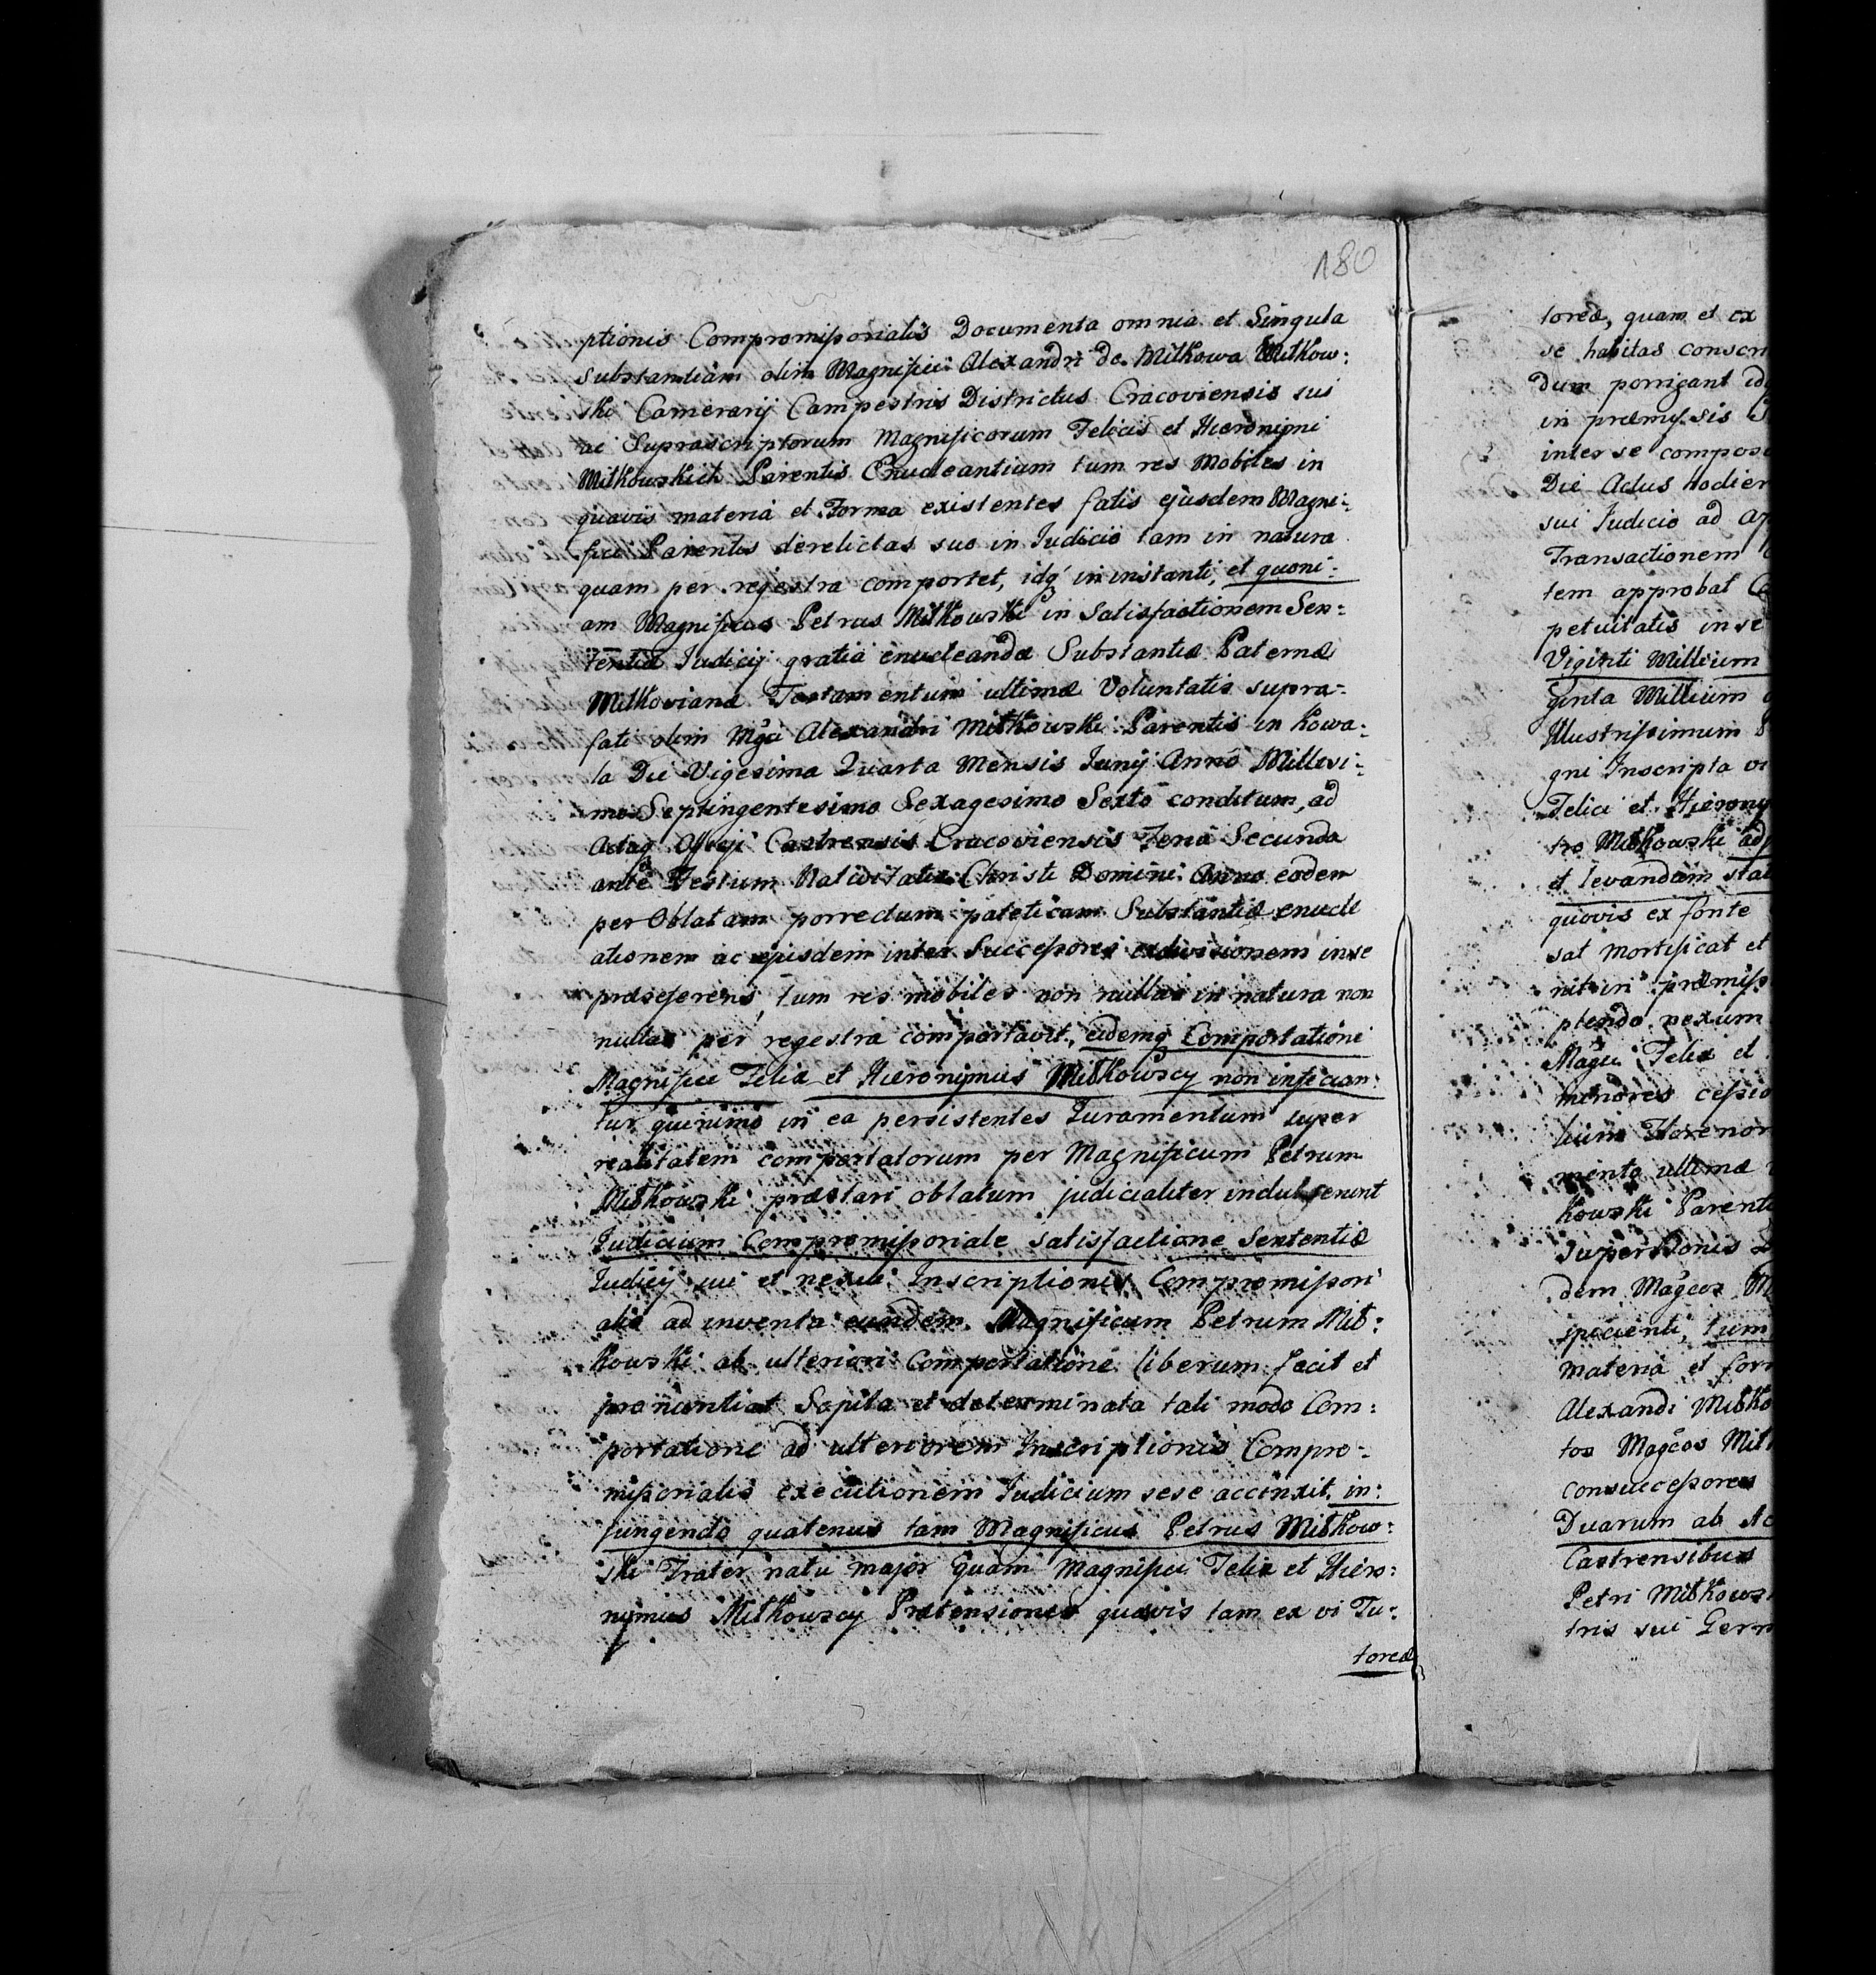 180
ptionis Compromissorialis Documenta omnia et Singula
substantiam olim Magnifici Alexandri de Mitkowa Mitkow:
ski Camerarij Campestris Districtus Cracoviensis sui
ac Suprascriptorum Magnificorum Felicis et Hieronymi
Mitkowskich Parentis Enucleantium tum res Mobiles in
quavis materia et Forma existentes fatis ejusdem Magni:
fici Parentis derelictas suo in Judicio tam in natura
quam per rejestra comportet, idq́ in instanti, et quoni:
am Magnificus Petrus Mitkowski in Satisfactionem Sen:
tentiæ Judicij gratia enucleandæ Substantiæ Paternæ
Mitkovianæ Testamentum ultimæ Voluntatis supra:
fati olim Mgci Alexandri Mitkowski Parentis in Kowa:
la Die Vigesima Quarta Mensis Junij Anno Millesi:
mo Septingentesimo Sexagesimo Sexto conditum, ad
Actaq Offcij Castrensis Cracoviensis Feria Secunda
ante Festum Nativitatis Christi Domini Anno eodem
per Oblatam porrectum pateticam Substantiæ enucle
ationem ac ejusdem inter Successores exdivisionem in se
præseferens, tum res mobiles non nullas in natura non
nullas per regestra comportavit, eidemq Comportatione
Magnifici Felix et Hieronymus Mitkowscy non infician:
tur quinimo in ea persistentes Juramentum super
realitatem comportatorum per Magnificum Petrum
Mitkowski præstari oblatum judicialiter indulserunt
Judicium Compromissoriale satisfactione Sententiæ
Judicij sui et nexui Inscriptionis Compromissori
alis adinventa eundem Magnificum Petrum Mit:
kowski ab ulteriori Comportatione liberum facit et
pronuntiat Sopita et determinata tali modo Com:
portatione ad ulteriorem Inscriptionis Compro:
missorialis executionem Judicium sese accinxit, in:
jungendo quatenus tam Magnificus Petrus Mitkow:
ski Frater natu major quam Magnifici Felix et Hiero:
nymus Mitkowscy Prætensiones quasvis tam ex vi Tu:
toreæ
toreæ, quam et ex
se habitas conscri
dum porrigant id
in præmissis
inter se compos
Die Actus hodier
sui Judicio ad ap
Transactionem
tem approbat
petuitatis in se
Viginti Millium
ginta Millium
Illustrissimum
gni Inscripta vi
Felici et Hierony
tro Mitkowski ad
et levandam stat
quovis ex fonte
sat mortificat et
nit in præmiss
ptendo nexum
Mağci Felix et
minores cessio
lium Florenor
mento ultimæ
kowski Parent
super Bonis
dem Mağcos
spicienti, tum
materia et for
Alexandi Mitko
tos Mağcos Mit
consuccessores
Duarum ab Ac
Castrensibus
Petri Mitkows
tris sui Germ